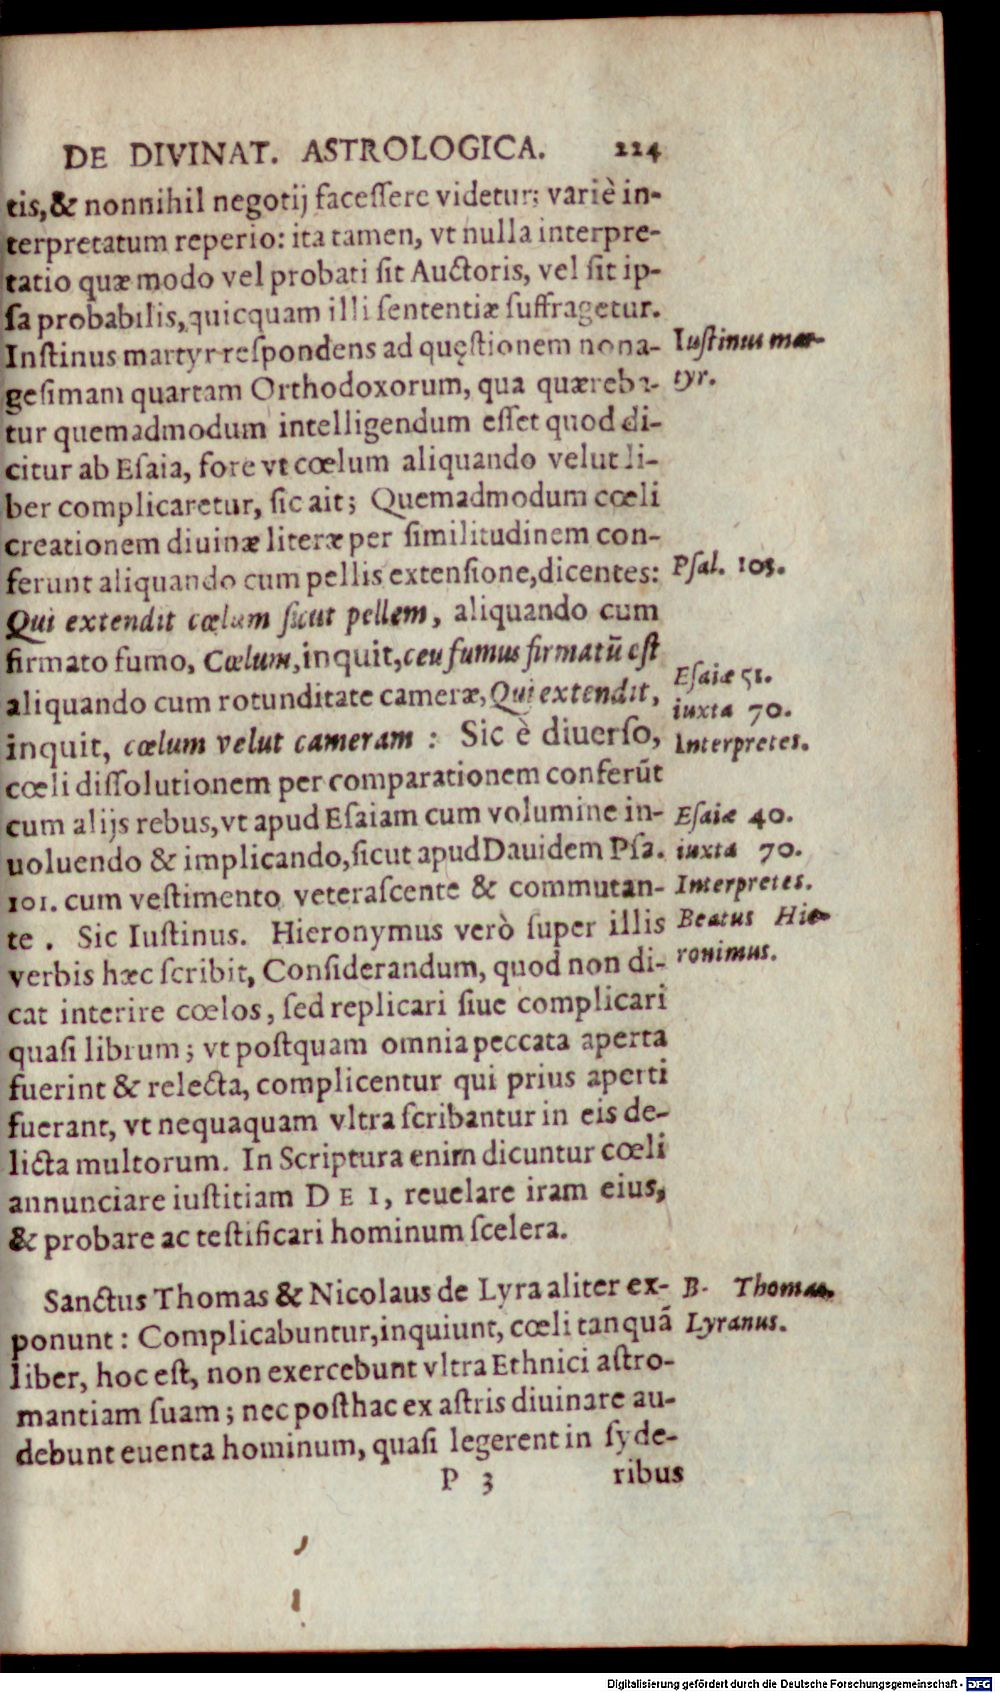 DE DIVINAT. ASTROLOGICA. 224
tis, & nonnihil negotij facessere videtur; variè in-
terpretatum reperio: ita tamen, vt nulla interpre-
tatio quæ modo vel probati sit Auctoris, vel sit ip-
sa probabilis, quicquam illi sententiæ suffragetur.
Iustinus martyr respondens ad quęstionem nona-
gesimam quartam Orthodoxorum, qua quæreba-
tur quemadmodum intelligendum esset quod di-
citur ab Esaia, fore vt cœlum aliquando velut li-
ber complicaretur, sic ait; Quemadmodum cœli
creationem diuinæ literæ per similitudinem con-
ferunt aliquando cum pellis extensione, dicentes:
Qui extendit cœlum sicut pellem, aliquando cum
firmato fumo, Cœlum, inquit, ceu fumus firmatũ est
aliquando cum rotunditate cameræ, Qui extendit,
inquit, cœlum velut cameram : Sic è diuerso,
cœli dissolutionem per comparationem conferũt
cum alijs rebus, vt apud Esaiam cum volumine in-
uoluendo & implicando, sicut apud Dauidem Psa.
101. cum vestimento veterascente & commutan-
te . Sic Iustinus. Hieronymus verò super illis
verbis hæc scribit, Considerandum, quod non di-
cat interire cœlos, sed replicari siue complicari
quasi librum; vt postquam omnia peccata aperta
fuerint & relecta, complicentur qui prius aperti
fuerant, vt nequaquam vltra scribantur in eis de-
licta multorum. In Scriptura enim dicuntur cœli
annunciare iustitiam DEI, reuelare iram eius,
& probare ac testificari hominum scelera.
Sanctus Thomas & Nicolaus de Lyra aliter ex-
ponunt: Complicabuntur, inquiunt, cœli tanquã
liber, hoc est, non exercebunt vltra Ethnici astro-
mantiam suam; nec posthac ex astris diuinare au-
debunt euenta hominum, quasi legerent in syde-
P 3 ribus
Iustinus mar-
tyr.
Psal. 103.
Esaiæ 51.
iuxta 70.
Interpretes.
Esaiæ 40.
iuxta 70.
Interpretes.
Beatus Hie-
ronimus.
B. Thomas.
Lyranus.
Digitalisierung gefördert durch die Deutsche Forschungsgemeinschaft - DFG